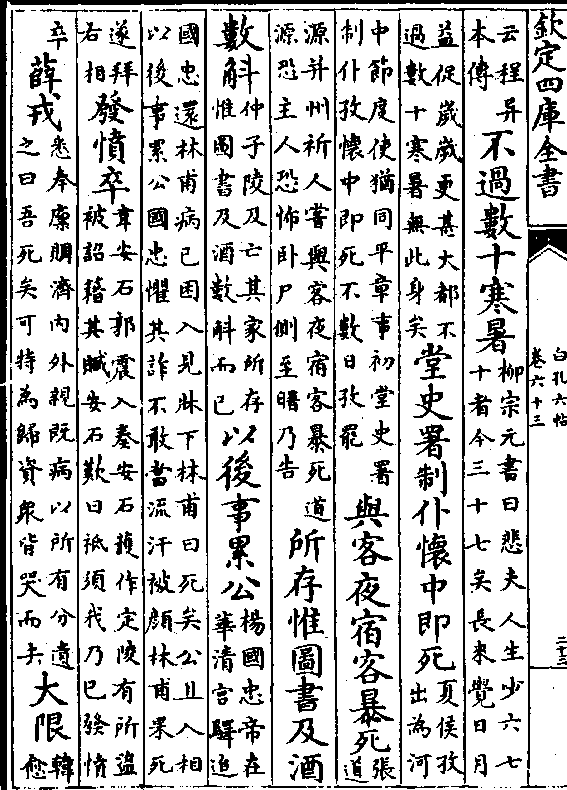 欽定四庫全書
白孔六帖
卷六十三
二十三
云程异
本傳
不過數十寒暑
柳宗元書曰悲夫人生少六七
十者今三十七矣長來覺日月
益促歲歲更甚大都不
過數十寒暑無此身矣
堂史署制仆懷中即死
夏侯孜
出為河
中節度使猶同平章事初堂史署
制仆孜懷中即死不數日孜罷
與客夜宿客暴死
張
道
源并州祈人嘗與客夜宿客暴死道
源恐主人恐怖卧尸側至曙乃告
所存惟圖書及酒
數斛
仲子陵及亡其家所存
惟圖書及酒數斛而已
以後事累公
楊國忠帝在
華清言驛追
國忠還林甫病已困入見牀下林甫曰死矣公且入相
以後事累公國忠懼其詐不敢當流汗被顔林甫果死
遂拜
右相
發憤卒
韋安石郭震入奏安石護作定陵有所盗
被詔籍其贓安石歎曰袛須我乃巳發憤
卒
薛戎
悉奉廪賙濟内外親既病以所有分遺
之曰吾死矣可持為歸資衆皆哭而去
大限
韓
愈